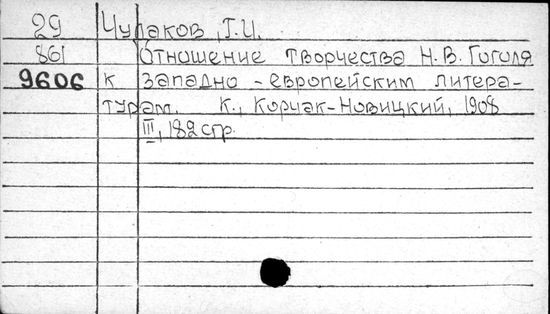 29 Чудаков, Г.И.
861 Отношение творчества Н.В. Гоголя
9606 к западно-европейским литера-
турам. К., Корчак-Новицкий, 1908
III, 182 стр.